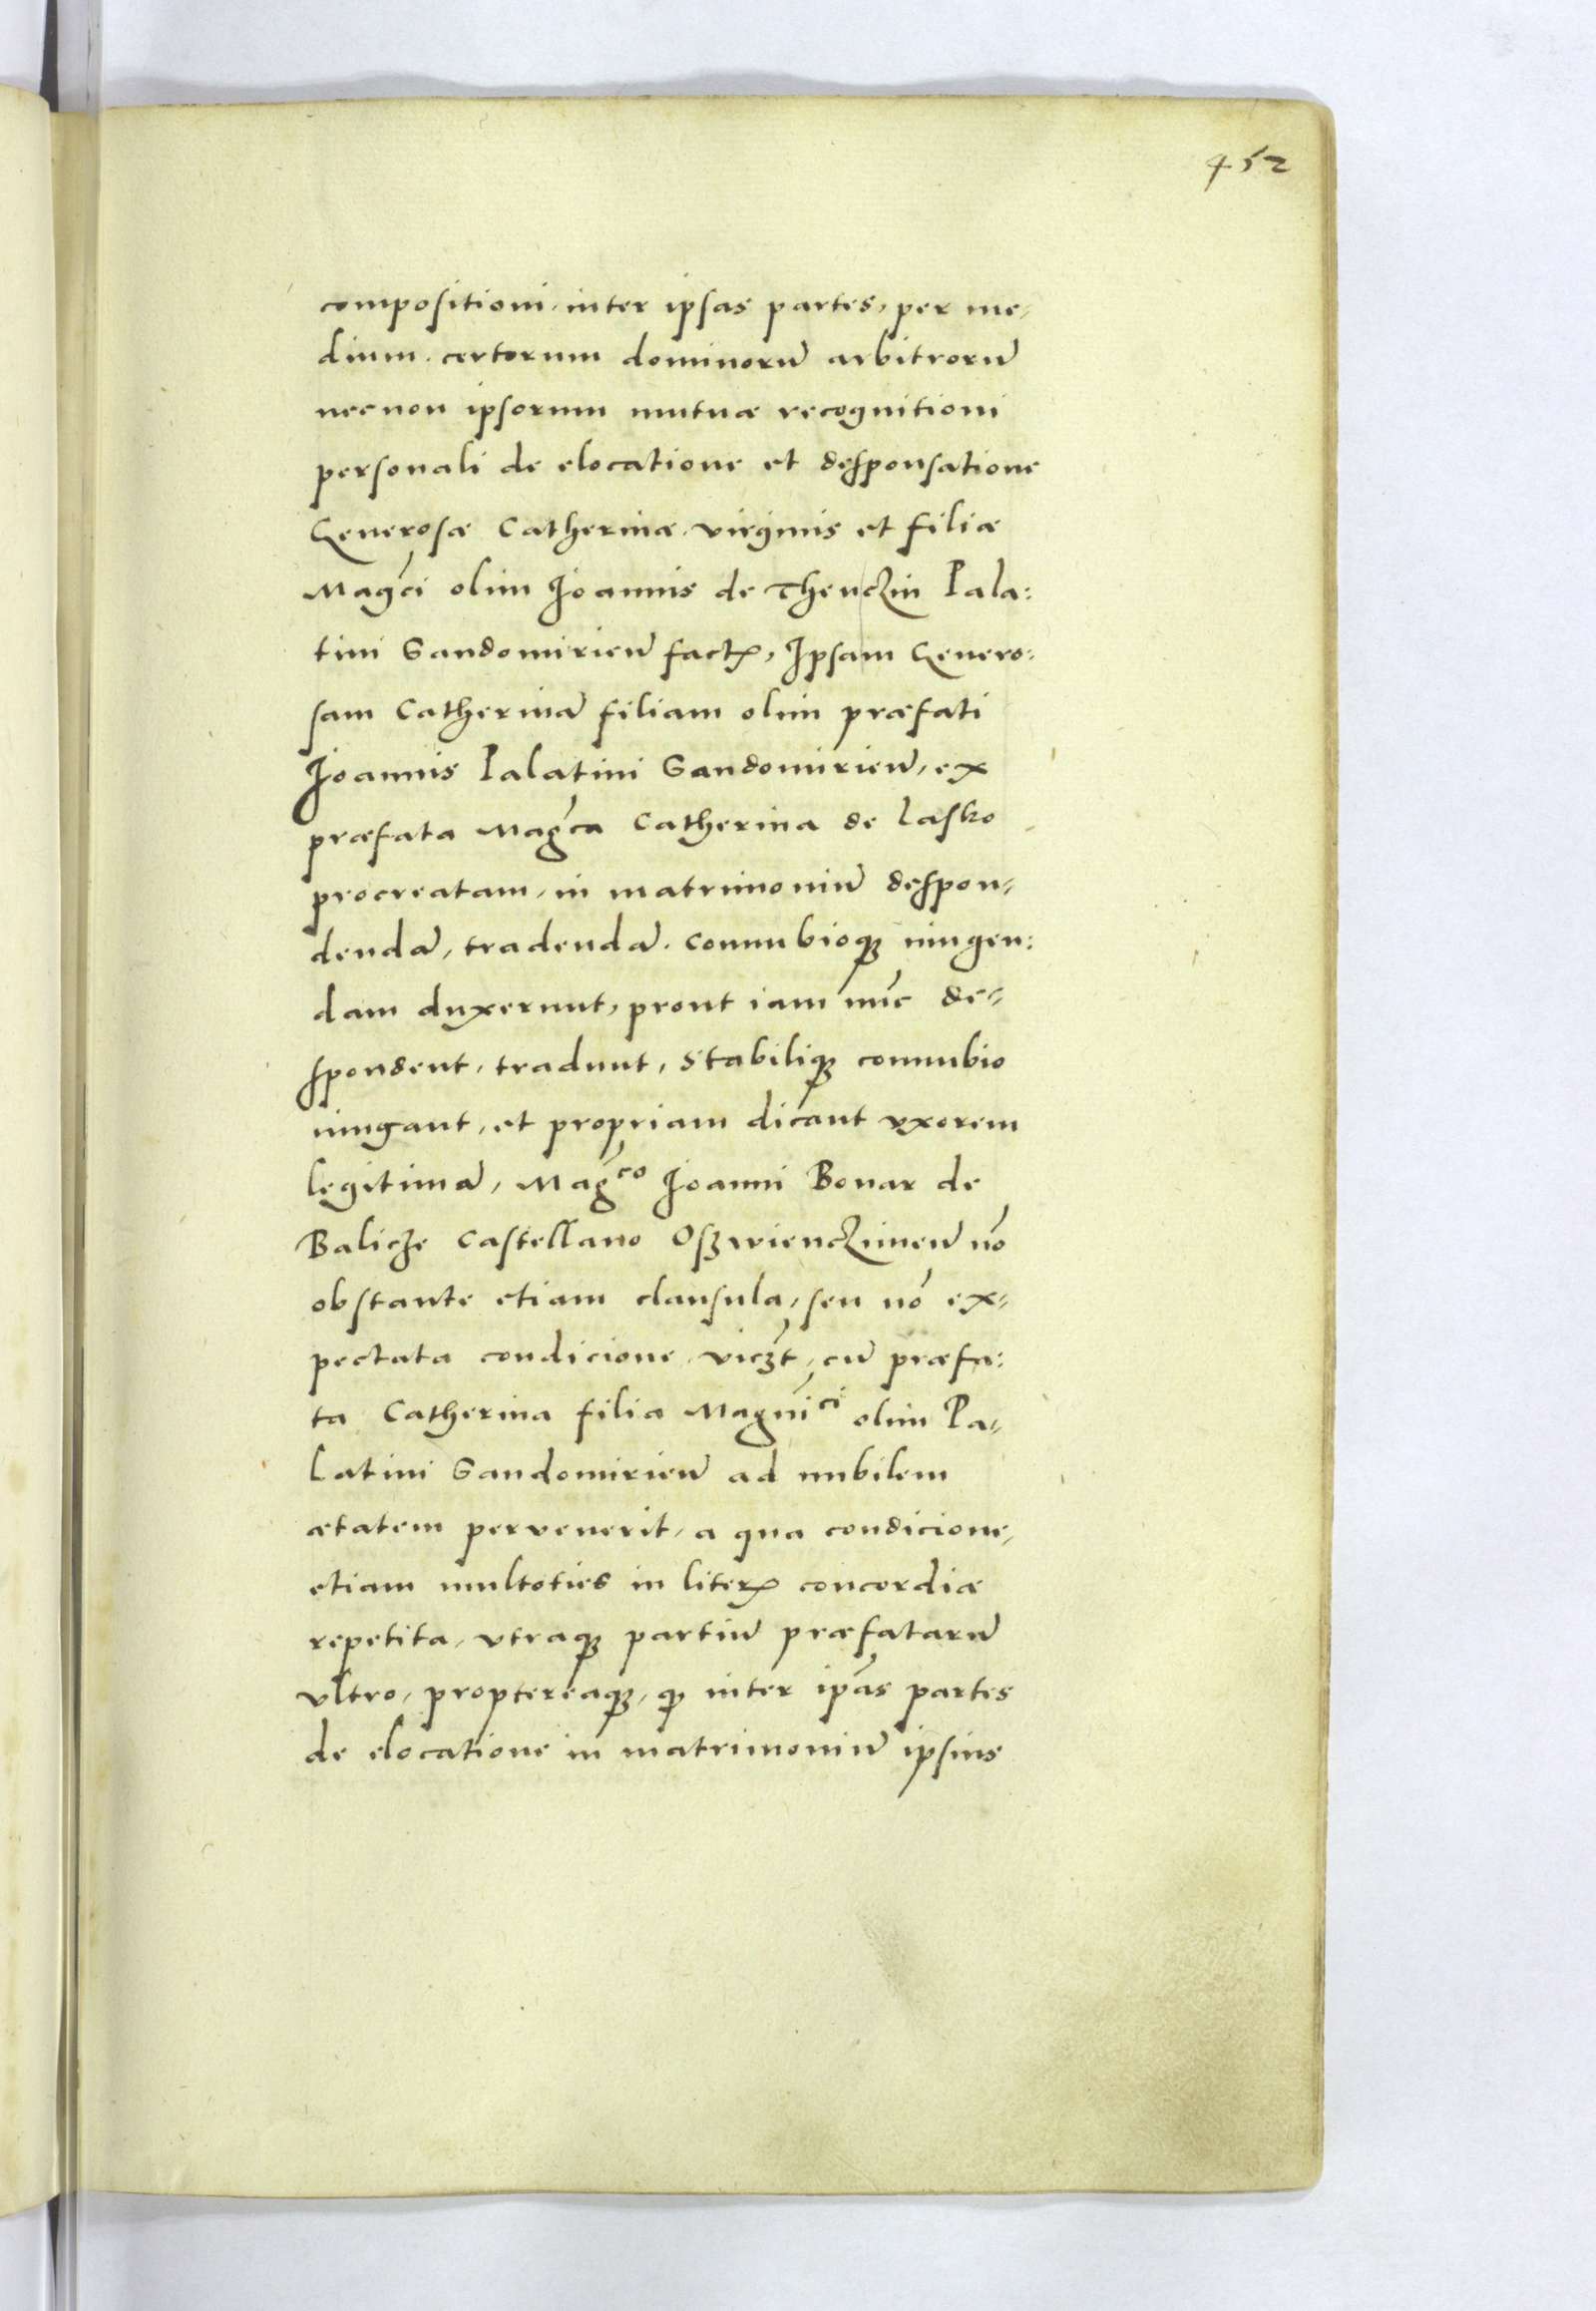 452
compositioni, inter ipsas partes, per me,
dium. certorum dominorū arbitrorū
necnon ipsorum mutuæ recognitioni
personali de elocatione et desponsatione
Generosæ Catherinæ, virginis et filiæ
Mag̃ci olim Ioannis de Thenczin Pala:
tini Sandomirien̄ factꝝ, Ipsam Genero:
sam Catherinā filiam olim præfati
Ioannis Palatini Sandomirien̄, ex
præfata Mag̃ca Catherina de Lasko
procreatam, in matrimoniū despon,
dendā, tradendā. connubioqꝫ iungen:
dam duxerunt, prout iam nūc de-
spondent, tradunt, stabiliqꝫ connubio
iungant, et propriam dicant vxorem
legitimā, Mag̃co Ioanni Bonar de
Balicze Castellano Oszwienczimen̄ nō
obstante etiam clausula, seu nō ex,
pectata condicione, viczt̃, cū præfa:
ta Catherina filia Magnīci olim Pa,
latini Sandomirien̄ ad nubilem
ætatem pervenerit, a qua condicione,
etiam multoties in literꝝ concordiæ
repetita, vtraqꝫ partiū præfatarū
vltro, proptereaqꝫ, qꝫ inter ip̄as partes
de elocatione in matrimoniū ipsius